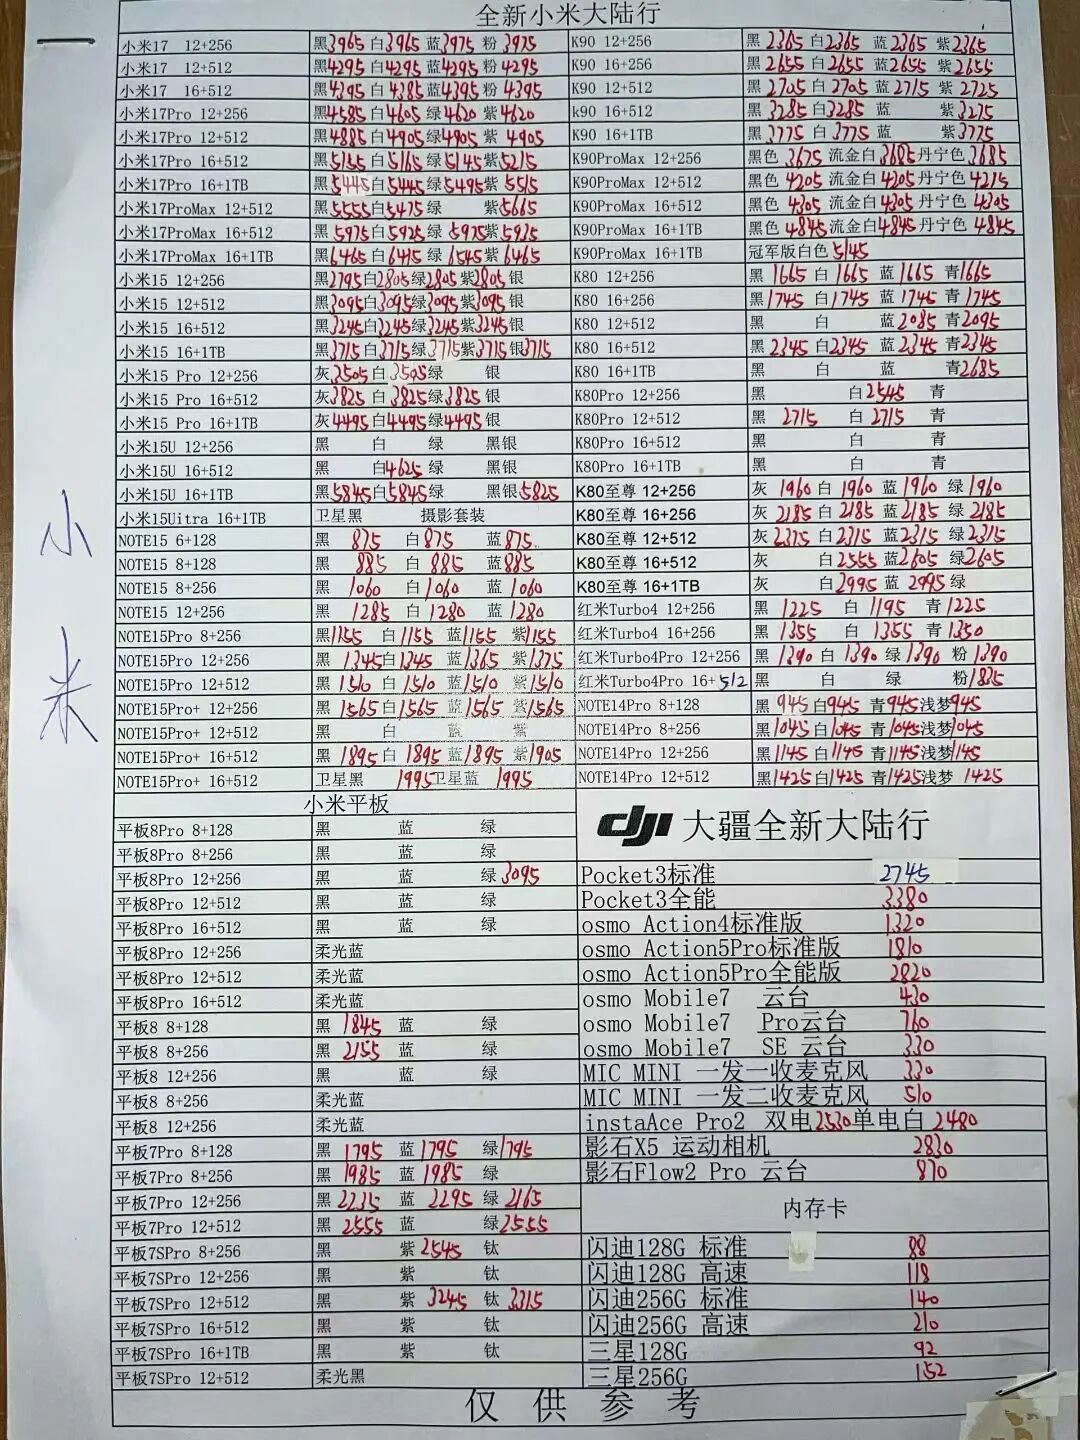 全新小米大陆行
小米17 12+256 黑3965 白3965 蓝3975 粉3975
小米17 12+512 黑4295 白4295 蓝4295 粉4295
小米17 16+512 黑4395 白4385 蓝4395 粉4395
小米17Pro 12+256 黑4585 白4605 绿4620 紫4620
小米17Pro 12+512 黑4885 白4905 绿4905 紫4905
小米17Pro 16+512 黑5155 白5165 绿5145 紫5215
小米17Pro 16+1TB 黑5445 白5445 绿5495 紫5515
小米17ProMax 12+512 黑5555 白5475 绿 紫5665
小米17ProMax 16+512 黑5975 白5925 绿5975 紫5935
小米17ProMax 16+1TB 黑6465 白6415 绿6545 紫6465
小米15 12+256 黑2795 白2805 绿2805 紫2805 银
小米15 12+512 黑3095 白3095 绿3095 紫3095 银
小米15 16+512 黑3245 白3245 绿3245 紫3245 银
小米15 16+1TB 黑3715 白3715 绿3715 紫3715 银3715
小米15 Pro 12+256 灰3505 白3505 绿 银
小米15 Pro 16+512 灰3825 白3825 绿3825 银
小米15 Pro 16+1TB 灰4495 白4495 绿4495 银
小米15U 12+256 黑 白 绿 黑银
小米15U 16+512 黑 白4625 绿 黑银
小米15U 16+1TB 黑5845 白5845 绿 黑银5825
小米15Uitra 16+1TB 卫星黑 摄影套装
NOTE15 6+128 黑 875 白875 蓝875
NOTE15 8+128 黑 885 白 885 蓝885
NOTE15 8+256 黑 1060 白1060 蓝1060
NOTE15 12+256 黑 1285 白1280 蓝1280
NOTE15Pro 8+256 黑1155 白1155 蓝1155 紫1155
NOTE15Pro 12+256 黑1345 白1345 蓝1365 紫1375
NOTE15Pro 12+512 黑1510 白1510 蓝1510 紫1510
NOTE15Pro+ 12+256 黑1565 白1565 蓝1565 紫1565
NOTE15Pro+ 12+512 黑 白 蓝 紫
NOTE15Pro+ 16+512 黑1895 白1895 蓝1895 紫1905
NOTE15Pro+ 16+512 卫星黑 1995 卫星蓝 1995
K90 12+256 黑2365 白2365 蓝2365 紫2365
K90 16+256 黑2655 白2655 蓝2655 紫2655
K90 12+512 黑2705 白2705 蓝2715 紫2725
k90 16+512 黑3285 白3285 蓝 紫3275
K90 16+1TB 黑3775 白3775 蓝 紫3775
K90ProMax 12+256 黑色 3675 流金白3685 丹宁色3685
K90ProMax 12+512 黑色 4205 流金白4205 丹宁色4215
K90ProMax 16+512 黑色 4305 流金白4305 丹宁色4305
K90ProMax 16+1TB 黑色 4845 流金白4845 丹宁色4845
K90ProMax 16+1TB 冠军版白色5145
K80 12+256 黑1665 白1665 蓝1665 青1665
K80 16+256 黑1745 白1745 蓝1745 青1745
K80 12+512 黑 白 蓝2085 青2095
K80 16+512 黑2345 白2345 蓝2345 青2345
K80 16+1TB 黑 白 蓝 青2685
K80Pro 12+256 黑 白2545 青
K80Pro 12+512 黑 2715 白2715 青
K80Pro 16+512 黑 白 青
K80Pro 16+1TB 黑 白 青
K80至尊 12+256 灰1960 白1960 蓝1960 绿1960
K80至尊 16+256 灰2185 白2185 蓝2185 绿2185
K80至尊 12+512 灰2375 白2315 蓝2315 绿2315
K80至尊 16+512 灰 白2555 蓝2605 绿2605
K80至尊 16+1TB 灰 白2995 蓝2995 绿
红米Turbo4 12+256 黑1225 白1195 青1225
红米Turbo4 16+256 黑1355 白1355 青1350
红米Turbo4Pro 12+256 黑1390 白1390 绿1390 粉1390
红米Turbo4Pro 16+512 黑 白 绿 粉1835
NOTE14Pro 8+128 黑945 白945 青945 浅梦945
NOTE14Pro 8+256 黑1045 白1045 青1045 浅梦1045
NOTE14Pro 12+256 黑1145 白1145 青1145 浅梦1145
NOTE14Pro 12+512 黑1425 白1425 青1425 浅梦1425
小米
小米平板
平板8Pro 8+128 黑 蓝 绿
平板8Pro 8+256 黑 蓝 绿
平板8Pro 12+256 黑 蓝 绿3095
平板8Pro 12+512 黑 蓝 绿
平板8Pro 16+512 黑 蓝 绿
平板8Pro 12+256 柔光蓝
平板8Pro 12+512 柔光蓝
平板8Pro 16+512 柔光蓝
平板8 8+128 黑 1845 蓝 绿
平板8 8+256 黑 2155 蓝 绿
平板8 12+256 黑 蓝 绿
平板8 8+256 柔光蓝
平板8 12+256 柔光蓝
平板7Pro 8+128 黑 1795 蓝1795 绿1795
平板7Pro 8+256 黑 1985 蓝1985 绿
平板7Pro 12+256 黑 2235 蓝 2295 绿2165
平板7Pro 12+512 黑 2555 蓝 绿2555
平板7SPro 8+256 黑 紫2545 钛
平板7SPro 12+256 黑 紫 钛
平板7SPro 12+512 黑 紫 3245 钛 3315
平板7SPro 16+512 黑 紫 钛
平板7SPro 16+1TB 黑 紫 钛
平板7SPro 12+512 柔光黑
dji 大疆全新大陆行
Pocket3标准 2745
Pocket3全能 3380
osmo Action4标准版 1320
osmo Action5Pro标准版 1810
osmo Action5Pro全能版 2820
osmo Mobile7 云台 430
osmo Mobile7 Pro云台 760
osmo Mobile7 SE 云台 330
MIC MINI 一发一收麦克风 330
MIC MINI 一发二收麦克风 510
instaAce Pro2 双电2530单电白 2480
影石X5 运动相机 2830
影石Flow2 Pro 云台 870
内存卡
闪迪128G 标准 88
闪迪128G 高速 118
闪迪256G 标准 140
闪迪256G 高速 210
三星128G 92
三星256G 152
仅供参考